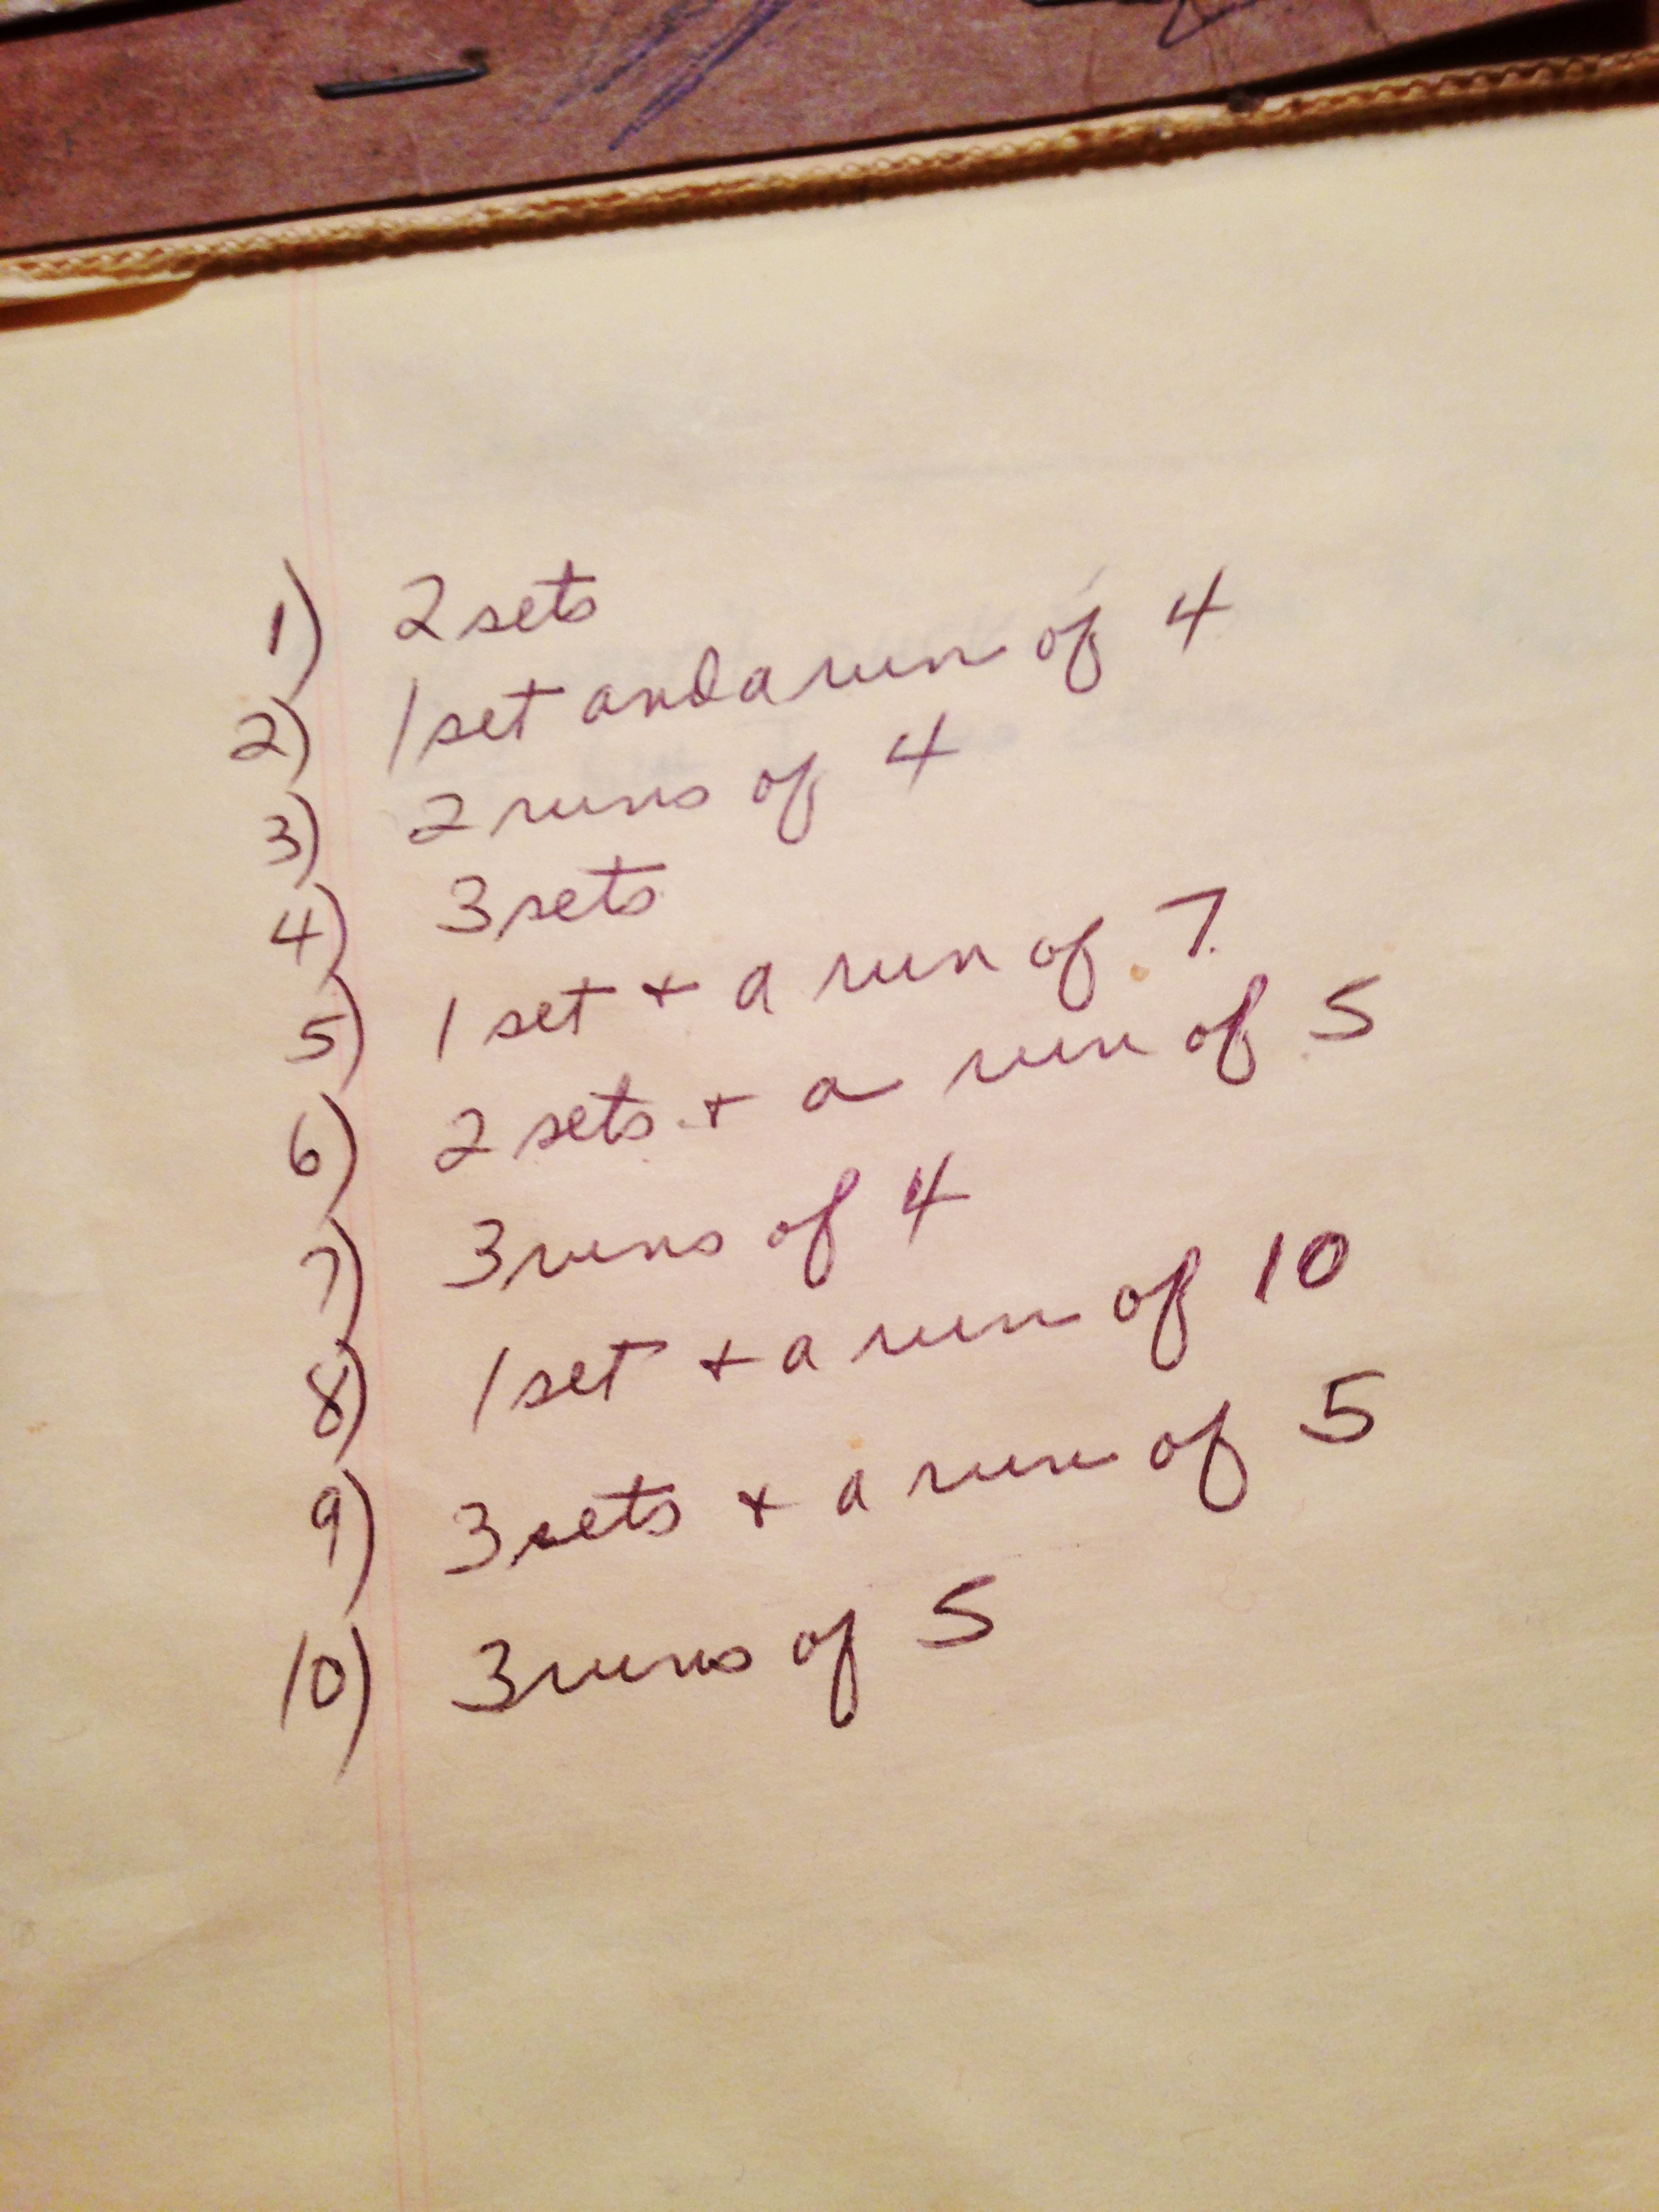 1) 2 sets
2) 1 set and a run of 4
3) 2 runs of 4
4) 3 sets
5) 1 set + a run of 7
6) 2 sets + a run of 5
7) 3 runs of 4
8) 1 set + a run of 10
9) 3 sets + a run of 5
10) 3 runs of 5